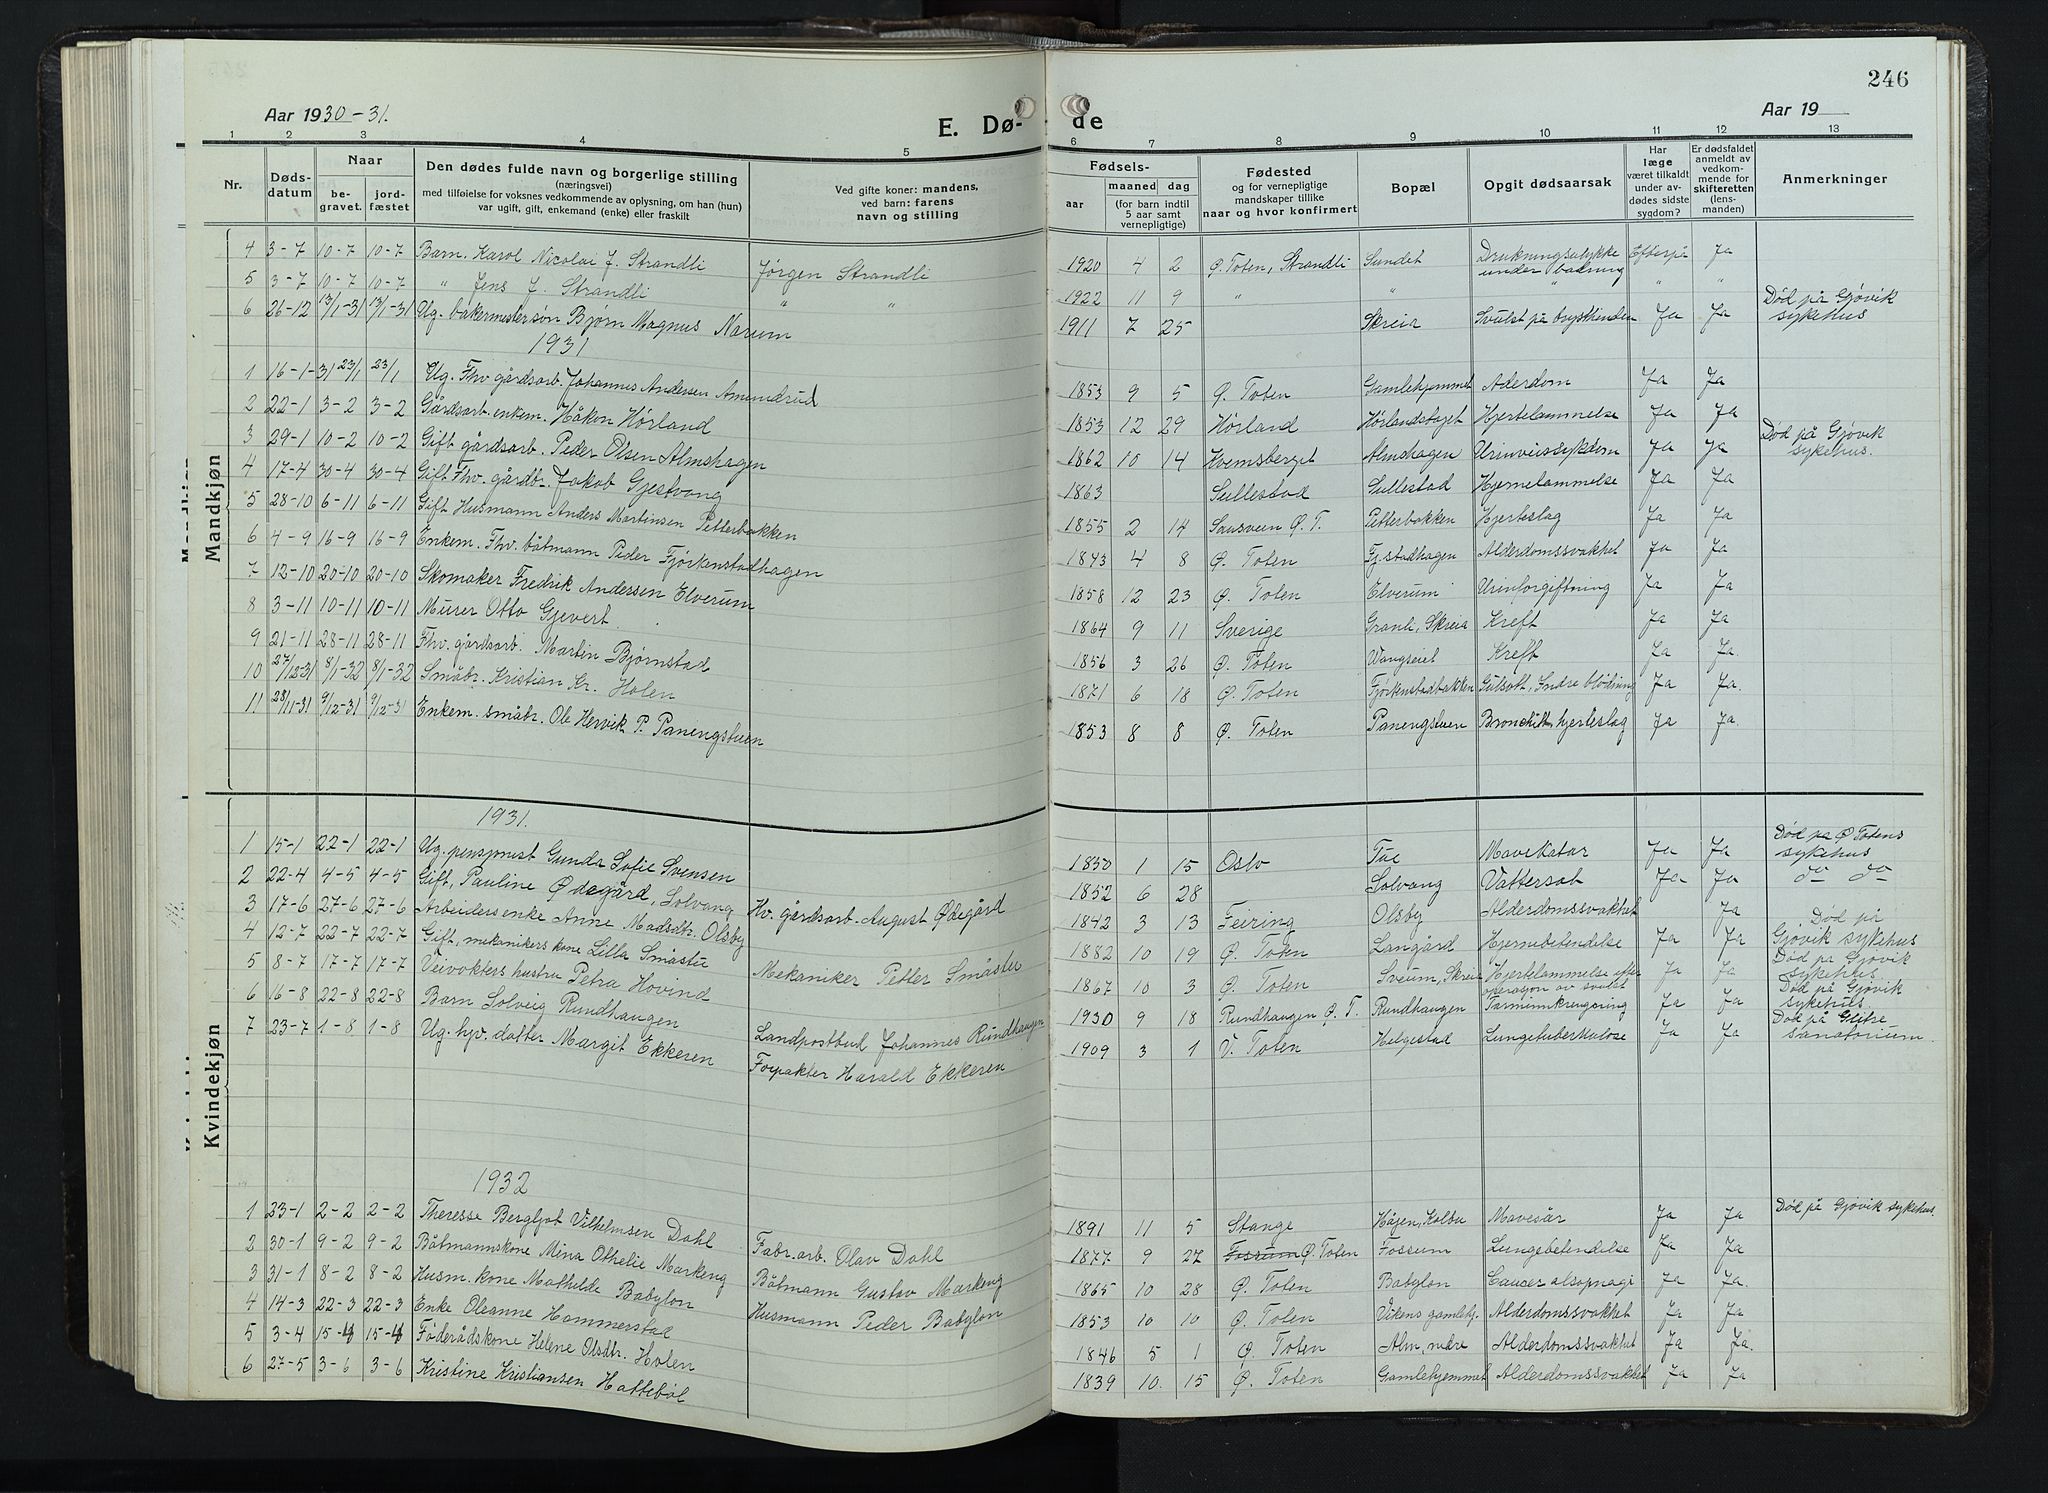 246
Aar 1930-31.
E. Dø-
de
Aar 19
1 2 3 4 5 6 7 8 9 10 11 12 13
Nr.
Døds-
datum
Naar
be-
gravet.
jord-
fæstet
Den dødes fulde navn og borgerlige stilling
(næringsvei)
med tilføielse for voksnes vedkommende av oplysning, om han (hun)
var ugift, gift, enkemand (enke) eller fraskilt
Ved gifte koner: mandens,
ved barn: farens
navn og stilling
Fødsels-
aar
maaned dag
(for barn indtil
5 aar samt
vernepligtige)
Fødested
og for vernepligtige
mandskaper tillike
naar og hvor konfirmert
Bopæl
Opgit dødsaarsak
Har
læge
været tilkaldt
under av-
dødes sidste
sygdom?
Er dødsfaldet
anmeldt av
vedkom-
mende for
skifteretten
(lens-
manden)
Anmerkninger
Mandkjøn
4 3-7 10-7 10-7 Barn. Karol Nicolai J. Strandli Jørgen Strandli 1920 4 2 Ø. Toten, Strandli Sundet Drukningsulykke under badning Efterpå Ja
5 3-7 10-7 10-7 " Jens J. Strandli " " 1922 11 9 " " " " "
6 26-12 13/1-31 13/1-31 Ug. bakermestersøn Bjørn Magnus Narum 1911 7 25 Skreia Svulst på brysthinden Ja Ja Død på Gjøvik sykehus
1931
1 16-1-31 23/1 23/1 Ug. Fhv gårdsarb. Johannes Andersen Amundrud 1853 9 5 Ø. Toten Gamlehjemmet Alderdom Ja Ja
2 22-1 3-2 3-2 Gårdsarb. enkem. Håkon Hørland 1853 12 29 Hørland Hørlandstajet Hjertelammelse Ja Ja
3 29-1 10-2 10-2 Gift gårdsarb. Peder Olsen Almshagen 1862 10 14 Kvemsberget Almshagen Urinveissykdom Ja Ja Død på Gjøvik sykehus.
4 17-4 30-4 30-4 Gift Fhv. gårdb. Jakob Gjestvang 1863 Sullestad Sullestad Hjernelammelse Ja Ja
5 28-10 6-11 6-11 Gift Husmann Anders Martinsen Petterbakken 1855 2 14 Sausveen Ø. T. Petterbakken Hjerteslag Ja Ja
6 4-9 16-9 16-9 Enkem. Fhv. båtmann Peder Fjørkenstadhagen 1843 4 8 Ø. Toten Fj.stadhagen Alderdomssvakhet Ja Ja
7 12-10 20-10 20-10 Skomaker Fredrik Andersen Elverum 1858 12 23 Ø. Toten Elverum Urinforgiftning Ja Ja
8 3-11 10-11 10-11 Murer Otto Gjevert 1864 9 11 Sverige Granli, Skreia Kreft Ja Ja
9 21-11 28-11 28-11 Fhv. gårdsarb. Martin Bjørnstad 1856 3 26 Ø. Toten Wangseiet Kreft Ja Ja.
10 27/12-31 8/1-32 8/1-32 Småbr. Kristian Kr. Holen 1871 6 18 Ø. Toten Fjørkenstadbakken Gulsott, Indre blødning Ja Ja.
11 28/11-31 9/12-31 9/12-31 Enkem. småbr. Ole Hervik P. Panengstuen 1853 8 8 Ø. Toten Panengstuen Bronchitt hjerteslag Ja Ja.
Kvindekjøn
1931.
1 15-1 22-1 22-1 Ug. pensjonist Gunda Sofie Svensen 1850 1 15 Oslo Tue Mavekatar Ja Ja Død på Ø Totens sykehus
2 22-4 4-5 4-5 Gift, Pauline Ødegård, Solvang Hv. gårdsarb. August Ødegård 1852 6 28 Solvang Vattersot Ja Ja do do
3 17-6 27-6 27-6 Arbeidersenke Anne Madsdtr. Olsby 1842 3 13 Feiring Olsby Alderdomssvakhet Ja
4 12-7 22-7 22-7 Gift, mekanikers kone Lilla Småstu Mekaniker Petter Småstu 1882 10 19 Ø. Toten Langård Hjernebetendelse Ja Ja Død på Gjøvik sykehus
5 8-7 17-7 17-7 Veivokters hustru Petra Hovind 1867 10 3 Ø. Toten Sveum, Skreia Hjertelammelse efter operasjon av svulst Ja Ja Død på Gjøvik sykehus.
6 16-8 22-8 22-8 Barn Solveig Rundhaugen Landpostbud Johannes Rundhaugen 1930 9 18 Rundhaugen Ø. T. Rundhaugen Tarminnkrengsning Ja Ja Død på Gjøvik sykehus.
7 23-7 1-8 1-8 Ug. hjv. datter Margit Ekkeren Forpakter Harald Ekkeren 1909 3 1 V. Toten Helgestad Lungetuberkulose Ja Ja Død på Glitre sanatorium.
1932
1 23-1 2-2 2-2 Theresse Bergljot Vilhelmsen Dahl Fabr.arb. Olav Dahl 1891 11 5 Stange Hågen, Kolbu Mavesår Ja Ja Død på Gjøvik sykehus
2 30-1 9-2 9-2 Båtmannskone Mina Othelie Markeng Båtmann Gustav Markeng 1877 9 27 Fossum Ø. Toten Fossum Lungebetendelse Ja Ja
3 31-1 8-2 8-2 Husm. kone Mathilde Babylon Husmann Peder Babylon 1865 10 28 Ø. Toten Babylon Cancer Ja Ja.
4 14-3 22-3 22-3 Enke Oleanne Hammerstad 1853 10 10 Ø. Toten Vikens gamlehj. Alderdomssvakhet Ja Ja
5 3-4 15-4 15-4 Føderådskone Helene Olsdtr. Holen 1846 5 1 Ø. Toten Alm, nedre Alderdomssvakhet Ja Ja.
6 27-5 3-6 3-6 Kristine Kristiansen Hattebøl 1839 10 15 Ø. Toten Gamlehjemmet Alderdomssvakhet Ja Ja